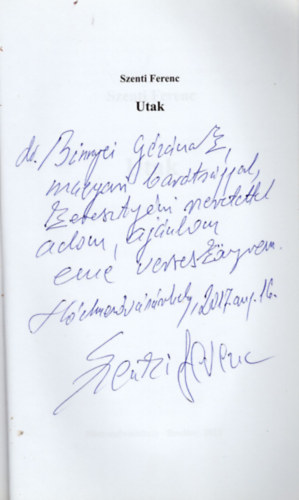 Szenti Ferenc
Utak
dr. Binnyei Gézának,
magyari barátsággal,
keresztyéni szeretettel
adom, ajánlom
eme verseskönyvem.
Hódmezővásárhely, 2017. aug. 16.
Szenti Ferenc